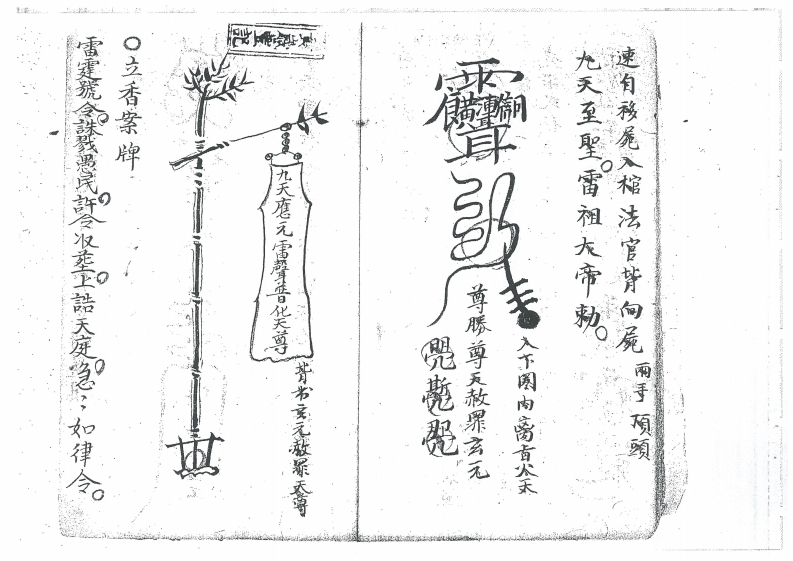 速自移屍入棺法官背向屍 兩手項頭
九天至聖雷祖大帝勅
入下圈內
尊勝尊天赦罪玄元
九天應元雷聲普化天尊
背书玄元赦罪天尊
立香案牌
雷霆號令誅戮愚民許令收葬上詣天庭急〻如律令